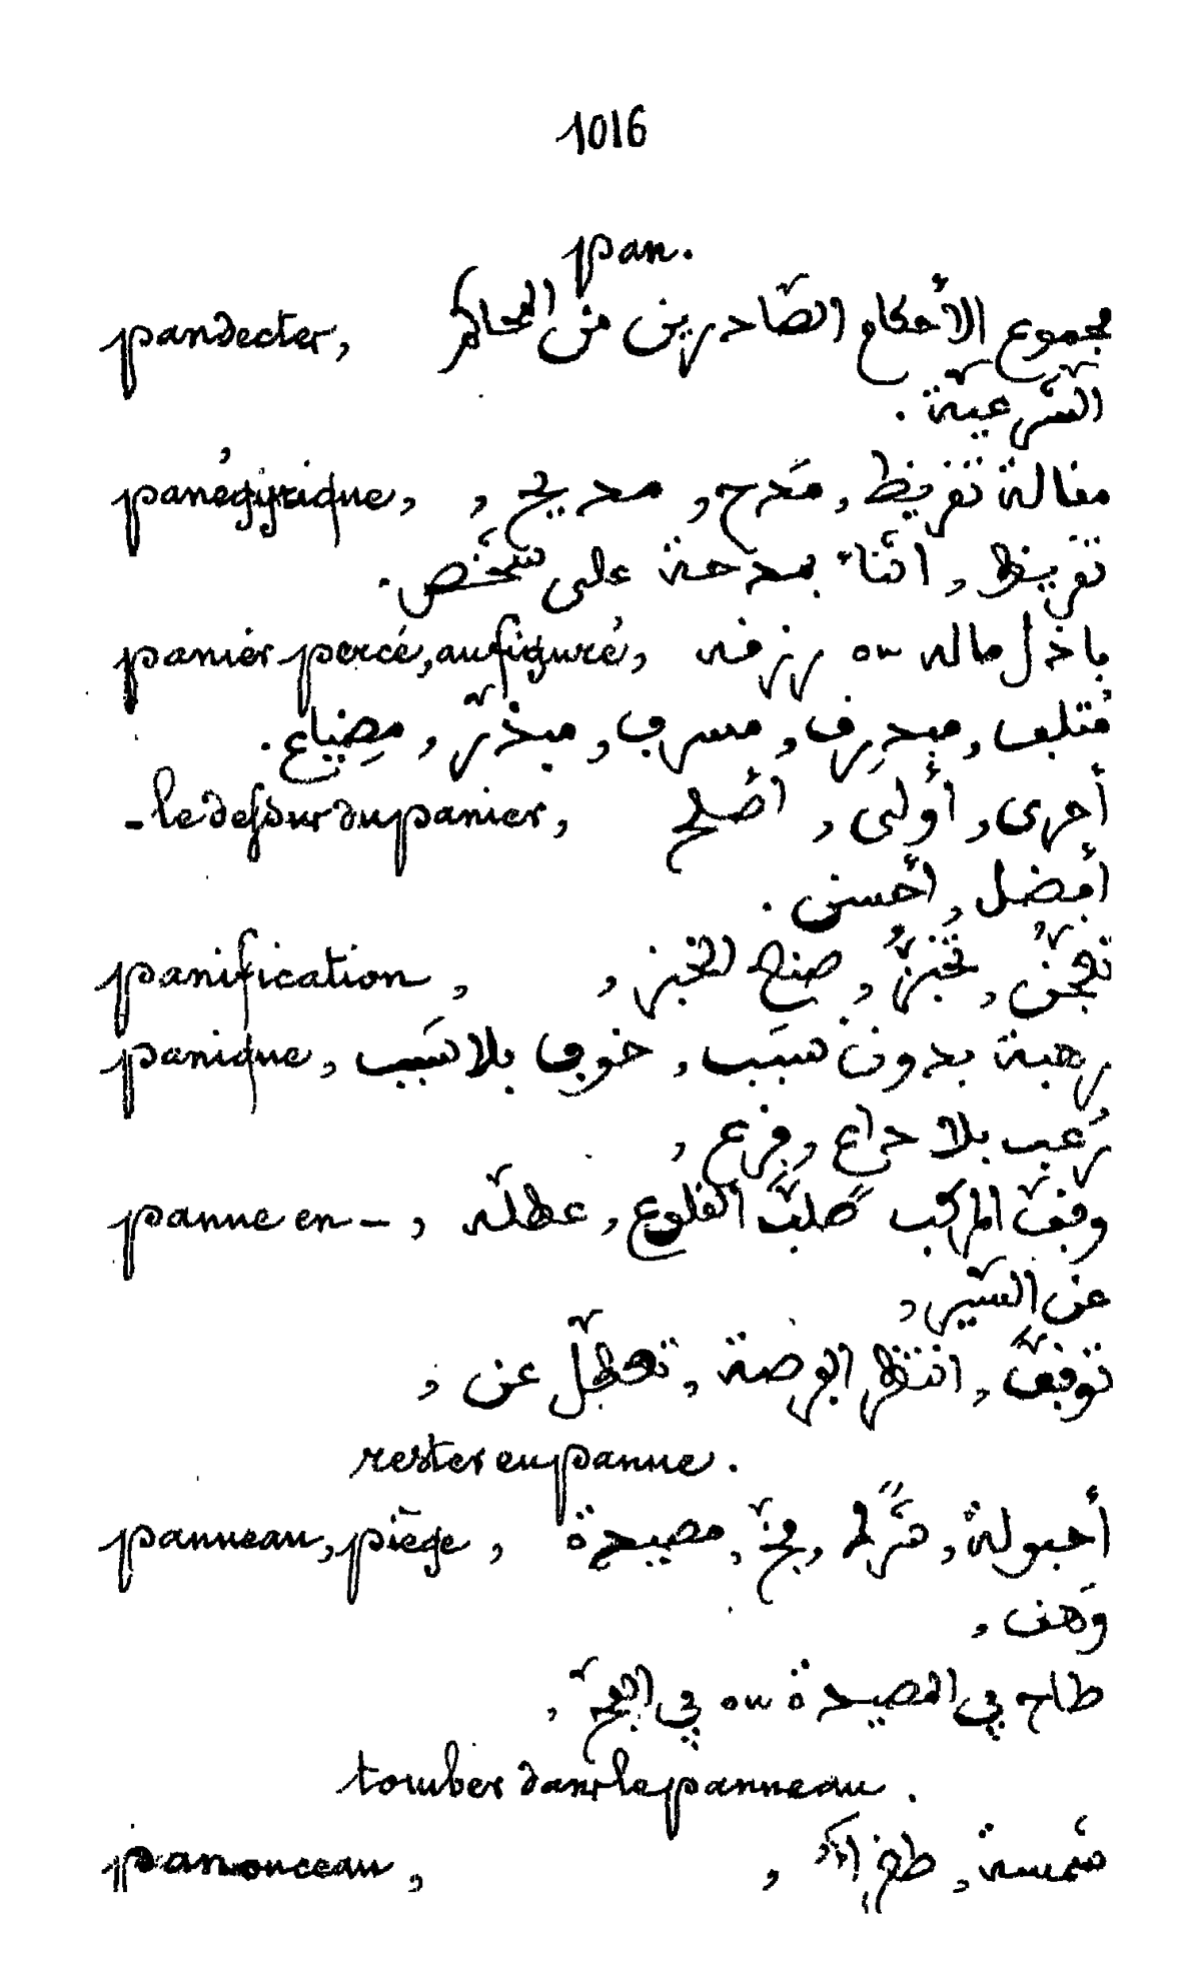 1016
pan.
pandectes, مجموع الأحكام الصّادرين من المحاكم
الشّرعيّة .
panégyrique, مقالة تقريظ, مَدح, مديح,
تقريظ, اثناء بمدحة على شخص.
panier percé, au figuré, باذل ماله ou رزقه
مُتلف, مسرف, مبذّر, مِضياع.
- le dessus du panier, أحرى, أولى, اصلح
أفضل, أحسن .
panification, تعجّن, تخبّز, صنع الخبز,
panique, رهبة بدون سَبَب, خوف بلا سَبَب,
رُعب بلا, فزع,
panne en —, وقف المركب القلوع, عطله
عن السّير,
توقّف, انتظر الفرصة, تعطّل عن,
rester en panne.
panneau, piège, أحبولة, شَرَك, فخّ, مصيدة
وَهف,
طاح في المصيدة ou في الفخّ,
tomber dans le panneau.
panonceau, شمسة,